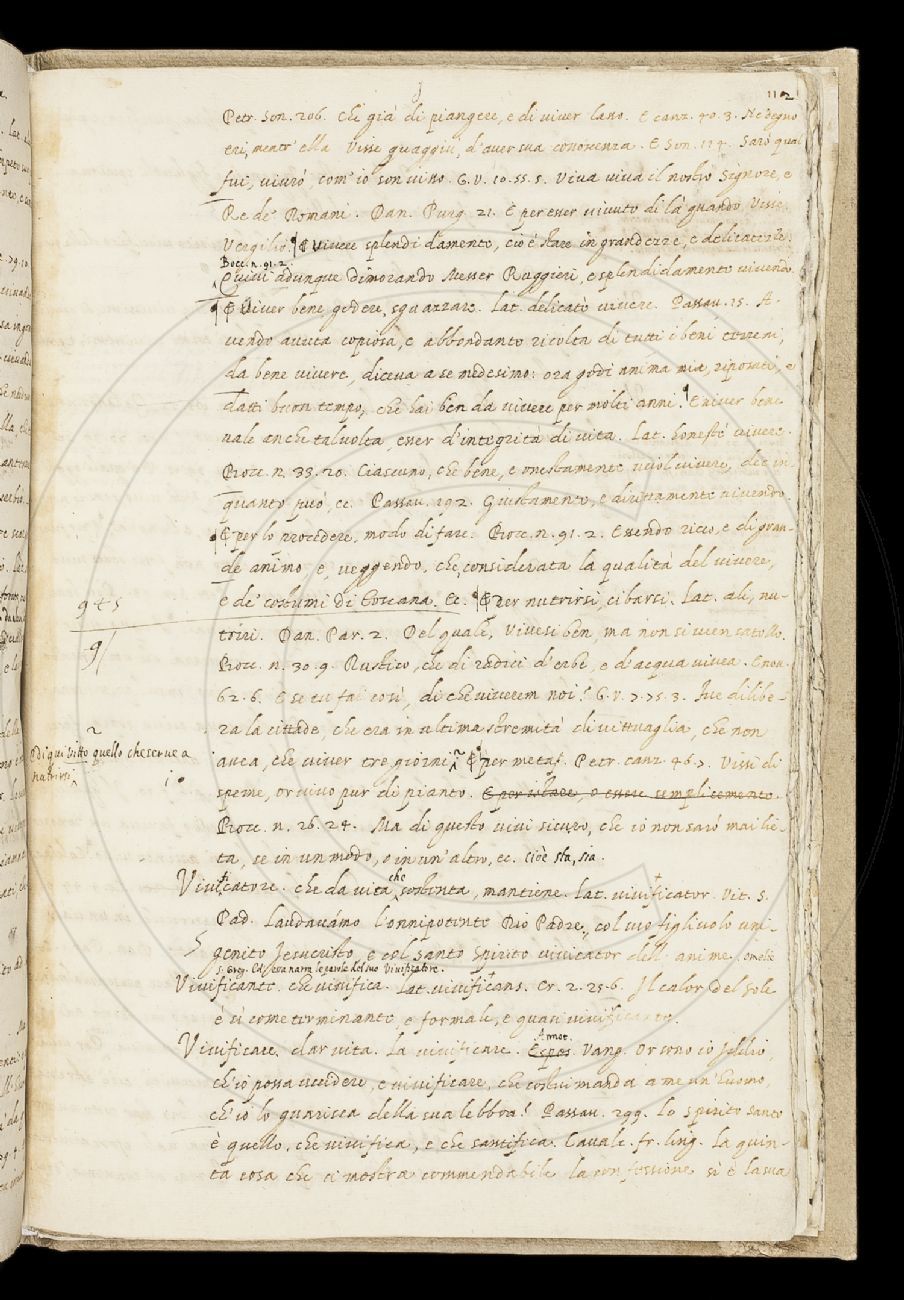 112
Petr. Son. 206. Che già di piangere, e di viver lasso. E canz. 40. 3. Ne degno
eri, mentr' ella Visse quaggiù, d'aver sua conoscenza. E Son. 114. Sarò qual
fui, vivrò, com' io son vivo. G. V. 10. 55. 5. Viva viva il nostro Signore, e
Re de' Romani. Dan. Purg. 21. E per esser vivuto di là quando Visse
Vergilio. ¶ Vivere splendidamente, cioè stare in grandezze, e delicatezze.
Bocc. n. 91. 2.
Quivi adunque dimorando Messer Ruggieri, e splendidamente vivendo.
¶ Viver bene godere, sguazzare. Lat. delicatè vivere. Passav. 15. A-
vendo avuta copiosa, e abbondante ricolta di tutti i beni terreni,
da bene vivere, diceva a se medesimo: ora godi anima mia, riposati, e
datti buon tempo, che hai ben da vivere per molti anni. E viver bene
vale anche talvolta esser d'integrità di vita. Lat. honestè vivere.
Bocc. n. 33. 20. Ciascuno, che bene, e onestamente vuol vivere, dee in
quanto può, ec. Passav. 192. Giustamente, e dirittamente vivendo.
¶ per lo procedere, modo di fare. Bocc. n. 91. 2. Essendo ricco, e di gran-
de animo e, veggendo, che, considerata la qualità del vivere,
e de' costumi di Toscana. Ec. ¶ Per nutrirsi, cibarsi. Lat. ali, nu-
945
triri. Dan. Par. 2. Del quale, Vivesi ben, ma non si vien satollo.
9/
Bocc. n. 30. 9. Rustico, che di radici d'erbe, e d'acqua vivea. E nov.
62. 6. E se tu fai così, di che viverem noi? G. V. 7. 75. 3. Fue dilibe-
ra la cittade, che era in ultima stremità di vittuaglia, che non
di qui vitto quello che serve a
nutrirsi
avea, che viver tre giorni. ¶ per metaf. Petr. canz. 46. 7. Vissi di
speme, or vivo pur di pianto. E per istare, o essere semplicemente.
Bocc. n. 26. 24. Ma di questo vivi sicuro, che io non sarò mai lie-
ta, se in un modo, o in un' altro, ec. cioè sta, sia.
Vivificatore. che da vita, che sostenta, mantiene. Lat. vivificator. Vit. S.
Pad. Laudavamo l'onnipotente Dio Padre, col suo figliuolo uni-
genito Jesucristo, e col santo Spirito vivicator dell' anime. omelie
S. Greg. Ed essa narra le parole del suo Vivificatore.
Vivificante. che vivifica. Lat. vivificans. Cr. 2. 25. 6. Il calor del Sole
è si come terminante, e formale, e quasi vivificante.
Vivificare. dar vita. La vivificare. Espos. Vang. Or sono io Iddio,
Annot.
ch'io possa uccidere, e vivificare, che costui manda a me un' huomo,
ch'io lo guarisca della sua lebbra! Passav. 299. Lo spirito santo
è quello, che vivifica, e che santifica. Cavalc. fr. ling. La quin-
ta cosa che ci mostra commendabile la confessione si è la sua